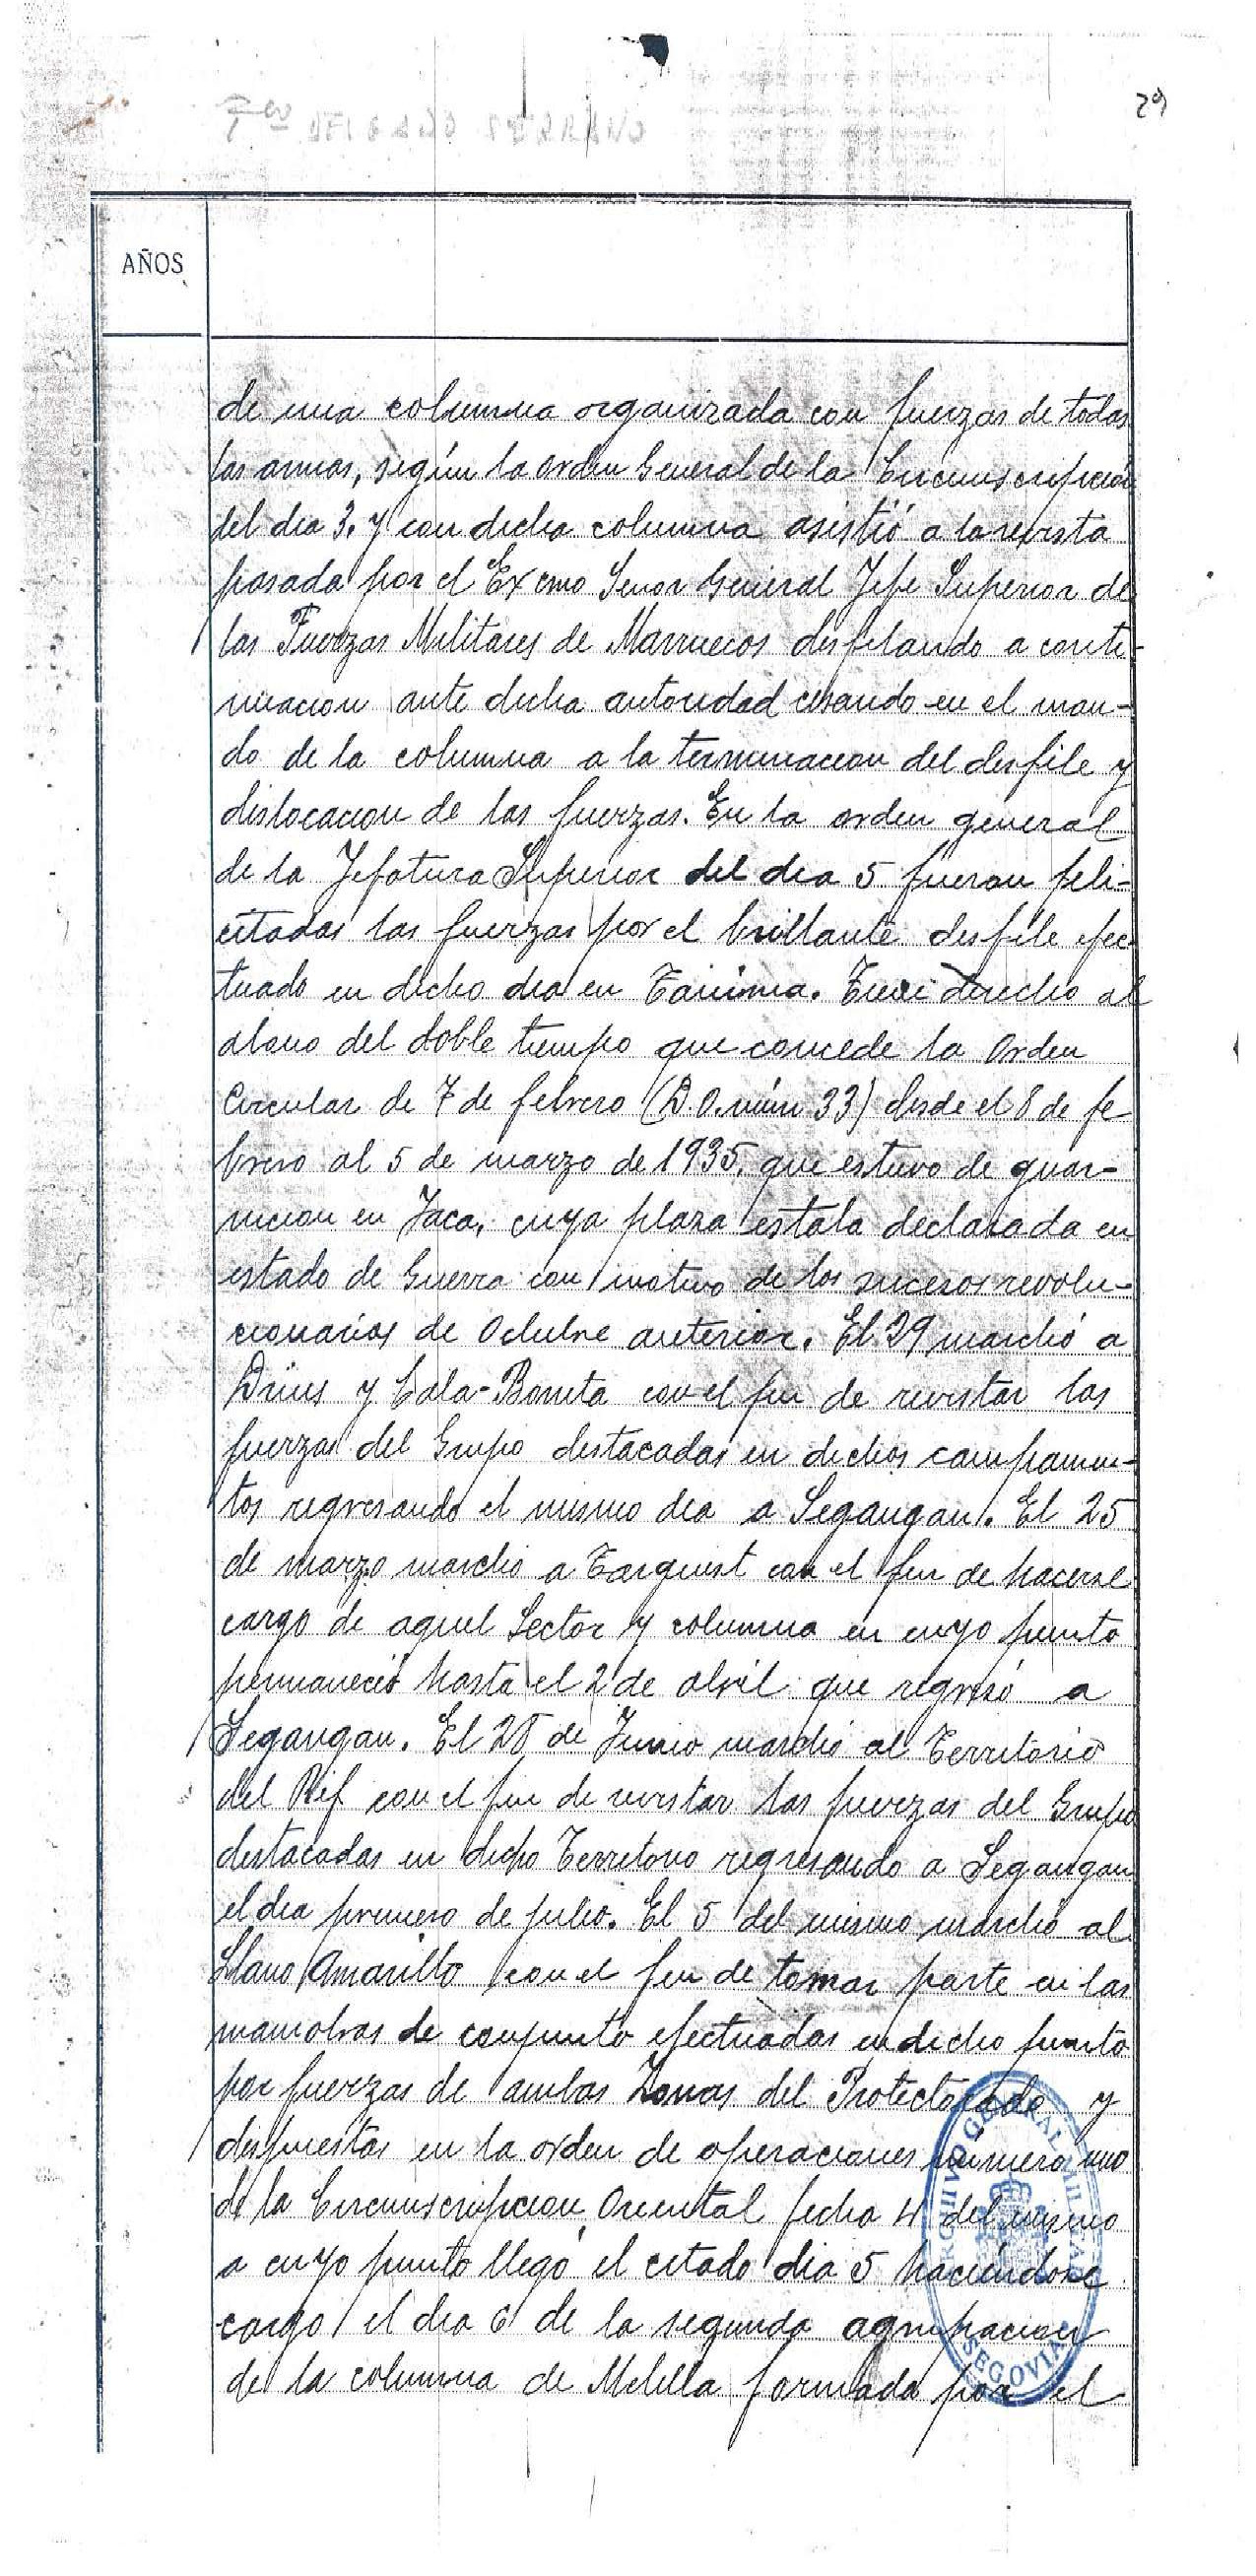 29
AÑOS
de una columna organizada con fuerzas de todas
las armas, según la orden General de la Circunscripción
del dia 3. y con dicha columna asistió a la revista
pasada por el Excmo Senor General Jefe Superior de
las Fuerzas Militares de Marruecos desfilando a conti-
nuacion ante dicha autoridad cesando en el man-
do de la columna a la terminacion del desfile y
dislocacion de las fuerzas. En la orden general
de la Jefatura Superior del dia 5 fueron feli-
citadas las fuerzas por el brillante desfile efec
tuado en dicho dia en Tauima. Tiene derecho al
abono del doble tiempo que concede la Orden
Circular de 7 de febrero (D.O. núm 33) desde el 8 de fe
brero al 5 de marzo de 1935, que estuvo de guar-
nicion en Jaca, cuya plaza estaba declarada en
estado de Guerra con motivo de los sucesos revolu-
cionarios de Octubre anterior. El 29 marchó a
Drius y Cala-Bonita con el fin de revistar las
fuerzas del Grupo destacadas en dichos campamen-
tos regresando el mismo dia a Segangan. El 25
de marzo marchó a Targuist con el fin de hacerse
cargo de aquel Sector y columna en cuyo punto
permaneció hasta el 2 de abril que regresó a
Segangan. El 28 de Junio marchó al Territorio
del Rif con el fin de revistar las fuerzas del Grupo
destacadas en dicho Territorio regresando a Segangan
el dia primero de julio. El 5 del mismo marchó al
Llano Amarillo con el fin de tomar parte en las
maniobras de conjunto efectuadas en dicho punto
por fuerzas de ambas Zonas del Protectorado y
dispuestas en la orden de operaciones número uno
de la Circunscripcion Oriental fecha 4 del mismo
a cuyo punto llegó el citado dia 5 haciéndose
cargo el dia 6 de la segunda agrupacion
de la columna de Melilla formada por el
ARCHIVO GENERAL MILITAR
SEGOVIA